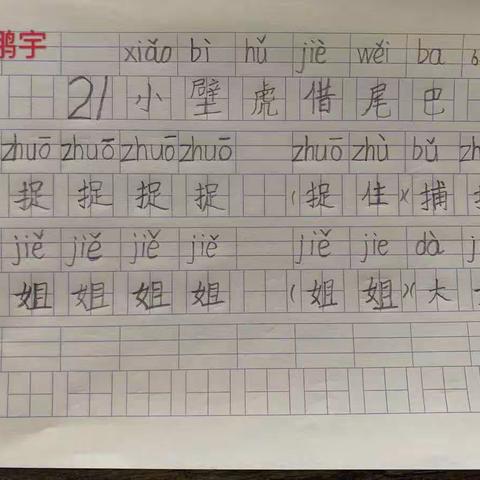 鹏宇
xiǎo bì hǔ jiè wěi ba
21 小 壁 虎 借 尾 巴
zhuō zhuō zhuō zhuō zhuō zhù bǔ
捉 捉 捉 捉 (捉 住)(捕
jiě jiě jiě jiě jiě jie dà
姐 姐 姐 姐 (姐 姐)(大